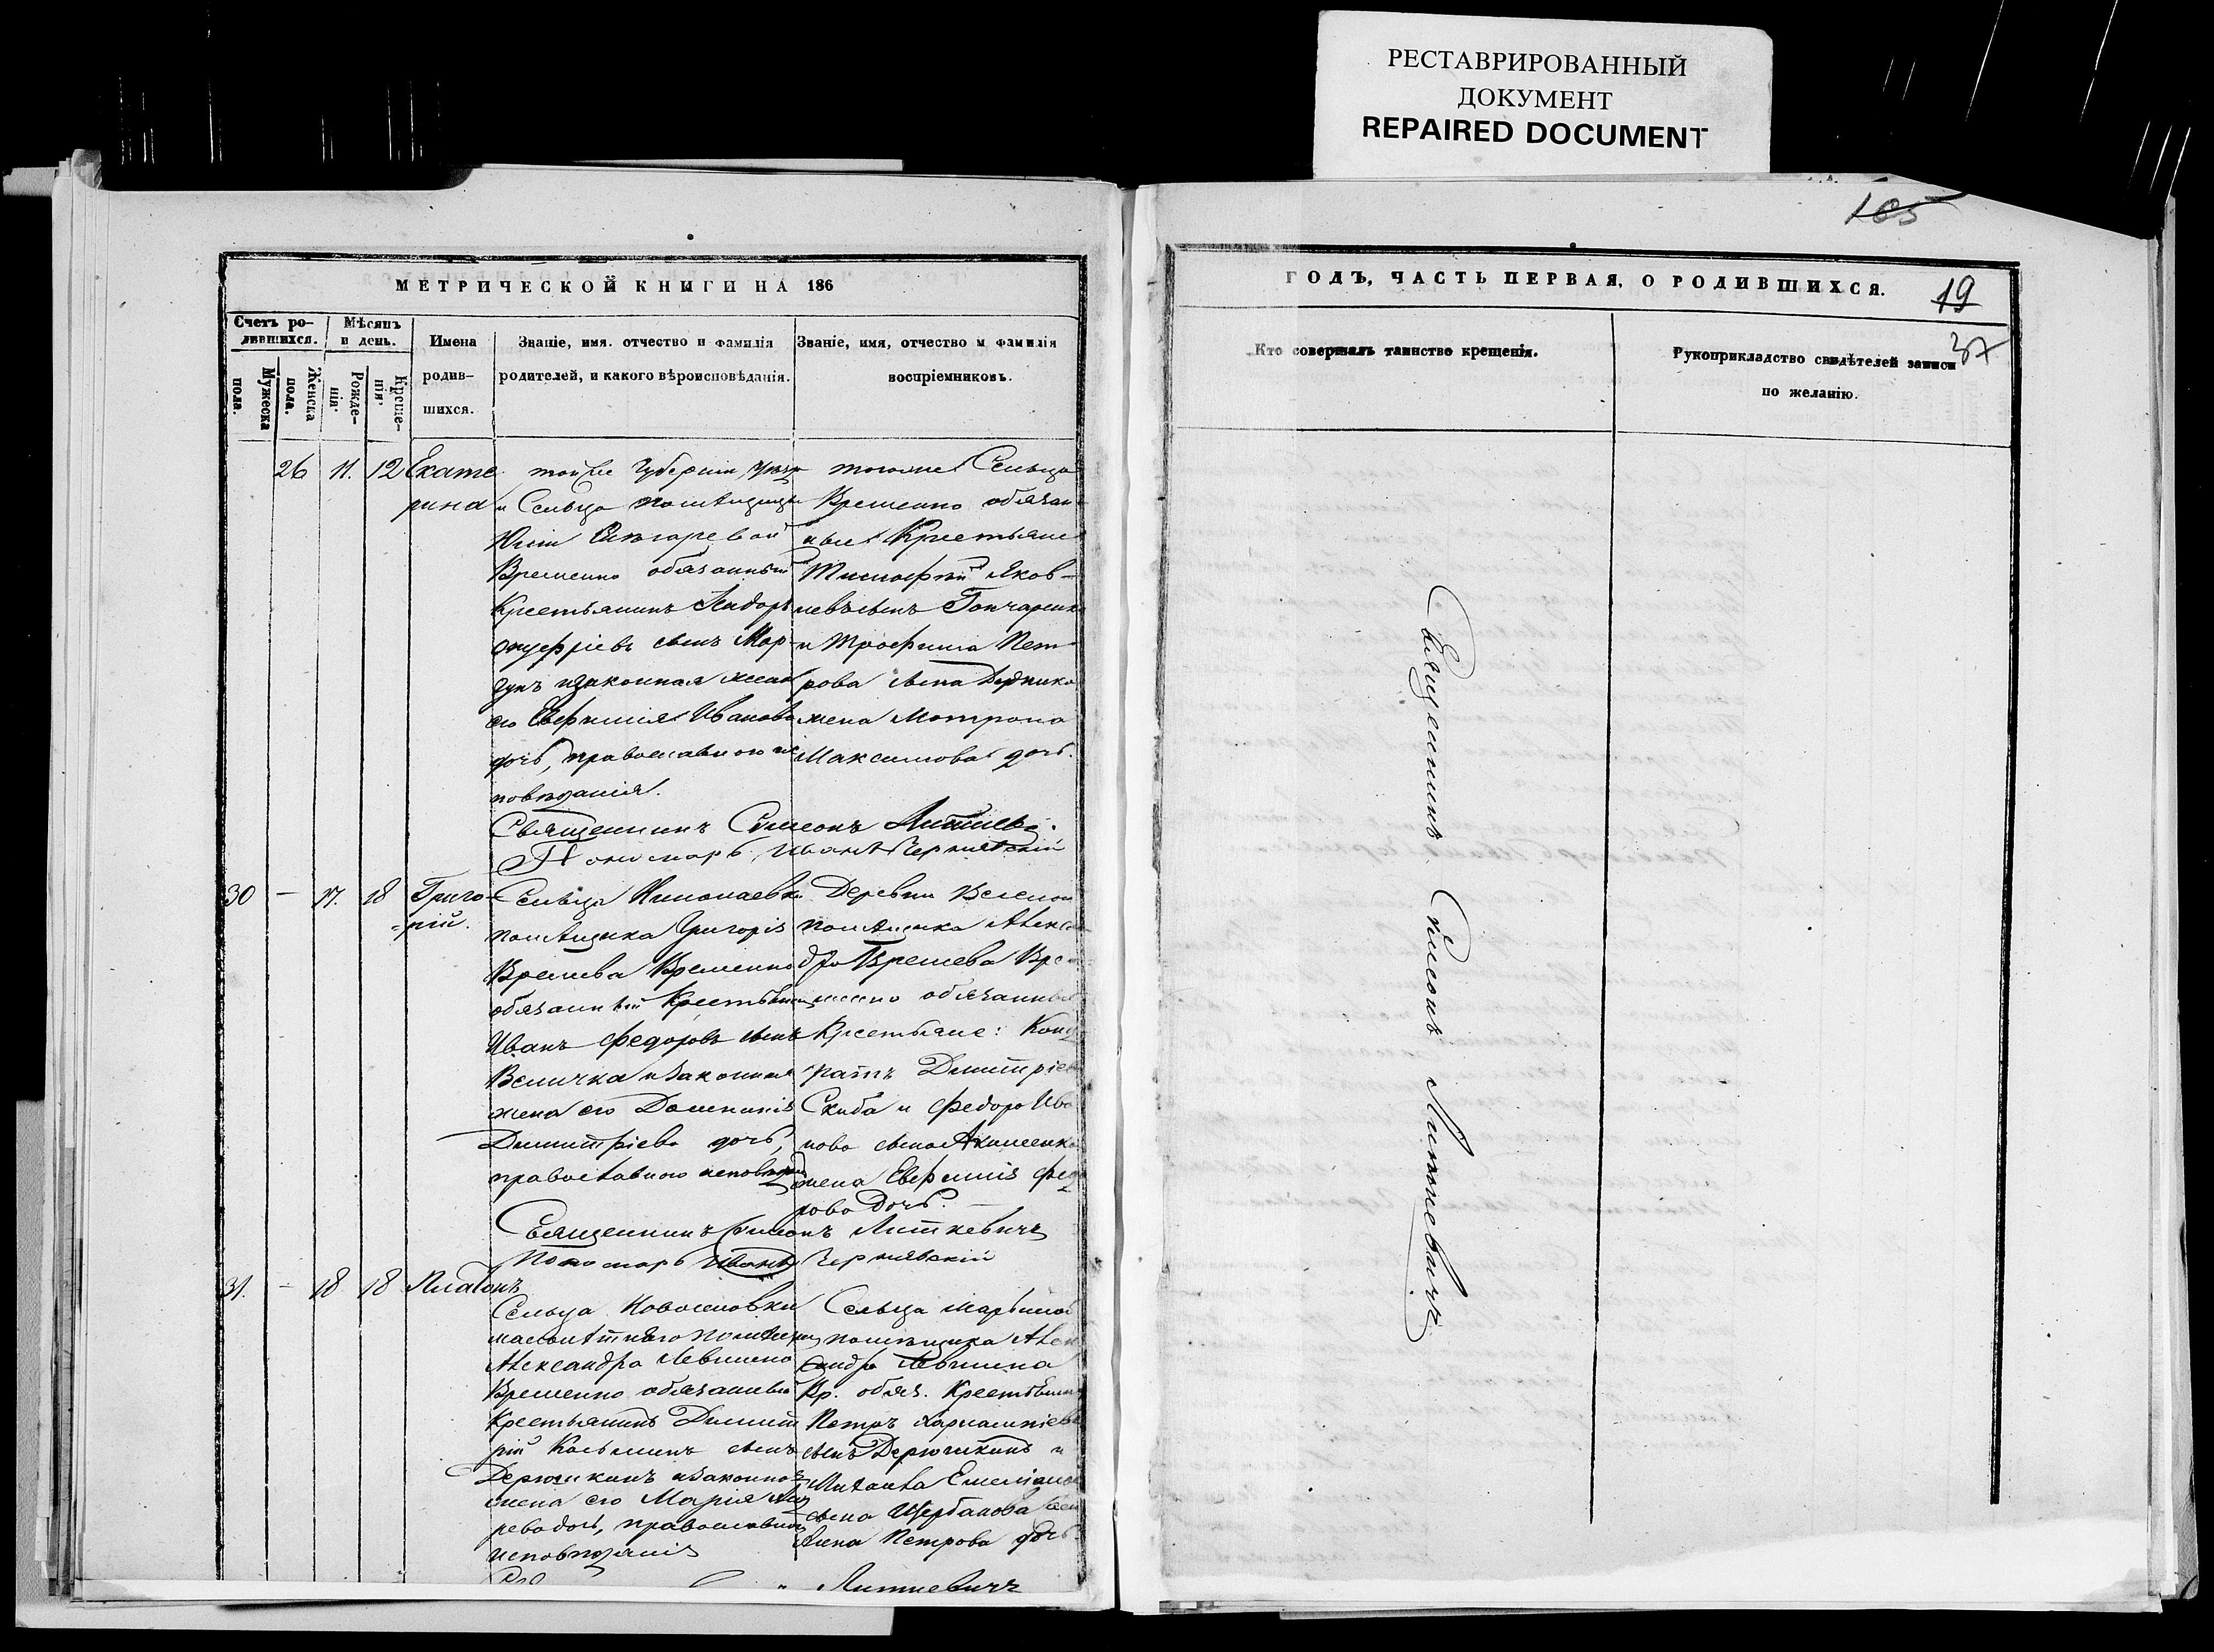 РЕСТАВРИРОВАННЫЙ
ДОКУМЕНТ
REPAIRED DOCUMENT
105
МЕТРИЧЕСКОЙ КНИГИ НА 186
Счетъ ро-
дившихся.
Мужеска
пола.
Женска
пола.
Мѣсяцъ
и день.
Рожде-
нія.
Креще-
нія.
Имена
родив-
шихся.
Званіе, имя, отчество и фамилія
родителей, и какого вѣроисповѣданія.
Званіе, имя, отчество и фамилія
воспріемниковъ.
26 11. 12 Екате
рина
той же Губерніи
и Сельца помѣщицы
Временно обязанный
Крестьянинъ
Онуфріевъ сынъ Мор-
гунъ и законная жена
его Евфимія Иванова
дочь, православного ис
повѣданія.
того же Сельца
Временно обязан-
ные Крестьяне
Тимофей Яков-
левъ сынъ Гончаренко
и Трофима Пет-
рова сына
жена Матрона
Максимова дочь.
Священникъ Симеонъ
Пономарь Иванъ Чернявскій
30 – 17. 18 Григо-
рій.
Сельца Николаевки
помѣщика Григорія
Временно
обязанный Крестьянин
Иванъ Федоровъ сынъ
Величка и законная
жена его Домникія
Димитріева дочь,
православного исповѣдан
Деревни
помѣщика Алекса
ндра Вре
менно обязанные
Крестьяне: Конд
ратъ Димитріев
Скиба и Федора Ива
нова сына Акименка
жена Евфимія Федо
рова дочь.
Священникъ Симеонъ Литкевичъ
Пономарь Иванъ Чернявскій
31. – 18 18 Платонъ
Сельца Новоселовки
помѣщика
Александра Левшина
Временно обязанный
Крестьянинъ Димит
рій Козьминъ сынъ
Дерюшкинъ и законная
жена его Марія
рева дочь, православного
исповѣданія
Сельца Марьиной
помѣщика Алек
сандра Левшина
Вр. обяз. Крестьянинъ
Петръ Харлампіевъ
сынъ Дерюшкинъ и
Михаила Емеліанова
сына Щербакова жена
Анна Петрова дочь
Литкевичъ
ГОДЪ, ЧАСТЬ ПЕРВАЯ, О РОДИВШИХСЯ.
19
37
Кто совершалъ таинство крещенія.
Рукоприкладство свидѣтелей записи
по желанію.
Священникъ Симеонъ Литкевичъ